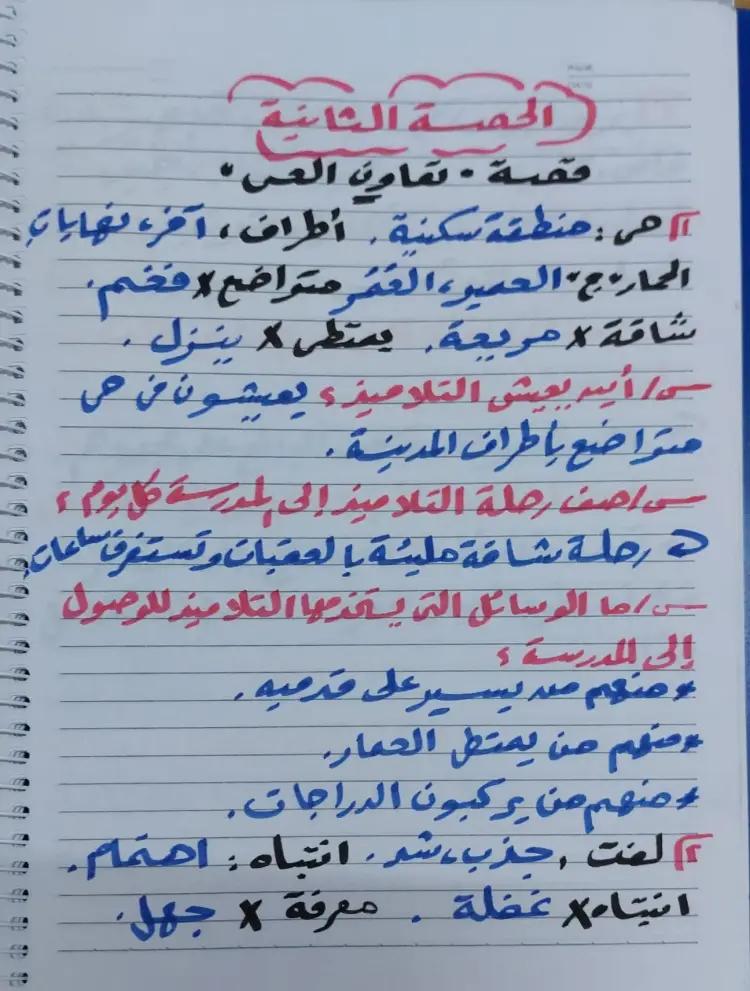 الحصة الثانية
قصة "تعاون الحي"
١ حي: منطقة سكنية. أطراف، آخر، نهايات
الحمار "ج" الحمير، الحُمُر متواضع × فخم.
شاقة × مريحة. يمتطي × ينزل.
س/ أين يعيش التلاميذ؟ يعيشون في حي
متواضع بأطراف المدينة.
س/ صف رحلة التلاميذ إلى المدرسة كل يوم؟
رحلة شاقة مليئة بالعقبات وتستغرق ساعات.
س/ ما الوسائل التي يستخدمها التلاميذ للوصول
إلى المدرسة؟
* منهم من يسير على قدميه.
* منهم من يمتطي الحمار.
* منهم من يركبون الدراجات.
٢ لفت، جذب، شد. انتباه: اهتمام.
انتباه × غفلة. معرفة × جهل.